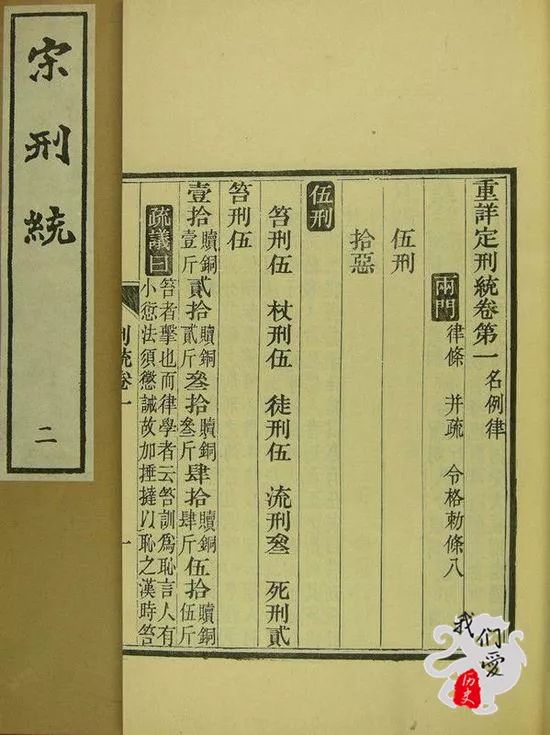 宋刑統
二
重詳定刑統卷第一 名例律
兩門 律條 并疏 令格勅條八
伍刑
拾惡
伍刑
笞刑伍 杖刑伍 徒刑伍 流刑叄 死刑貳
笞刑伍
壹拾贖銅壹斤貳拾贖銅貳斤叄拾贖銅叄斤肆拾贖銅肆斤伍拾贖銅伍斤
疏議曰笞者擊也而律學者云笞訓爲恥言人有
小愆法須懲誡故加捶撻以恥之漢時笞
刑統卷一
一
我们爱
历史